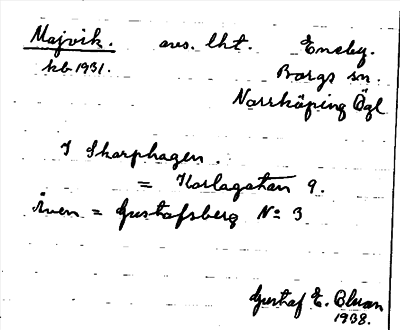 Majvik. avs. lht. Eneby.
kb 1931. Borgs sn.
Norrköping Ögl
I Skarphagen.
= Karlagatan 9.
Även = Gustafsberg No 3
Gustaf E. Bluan
1938.